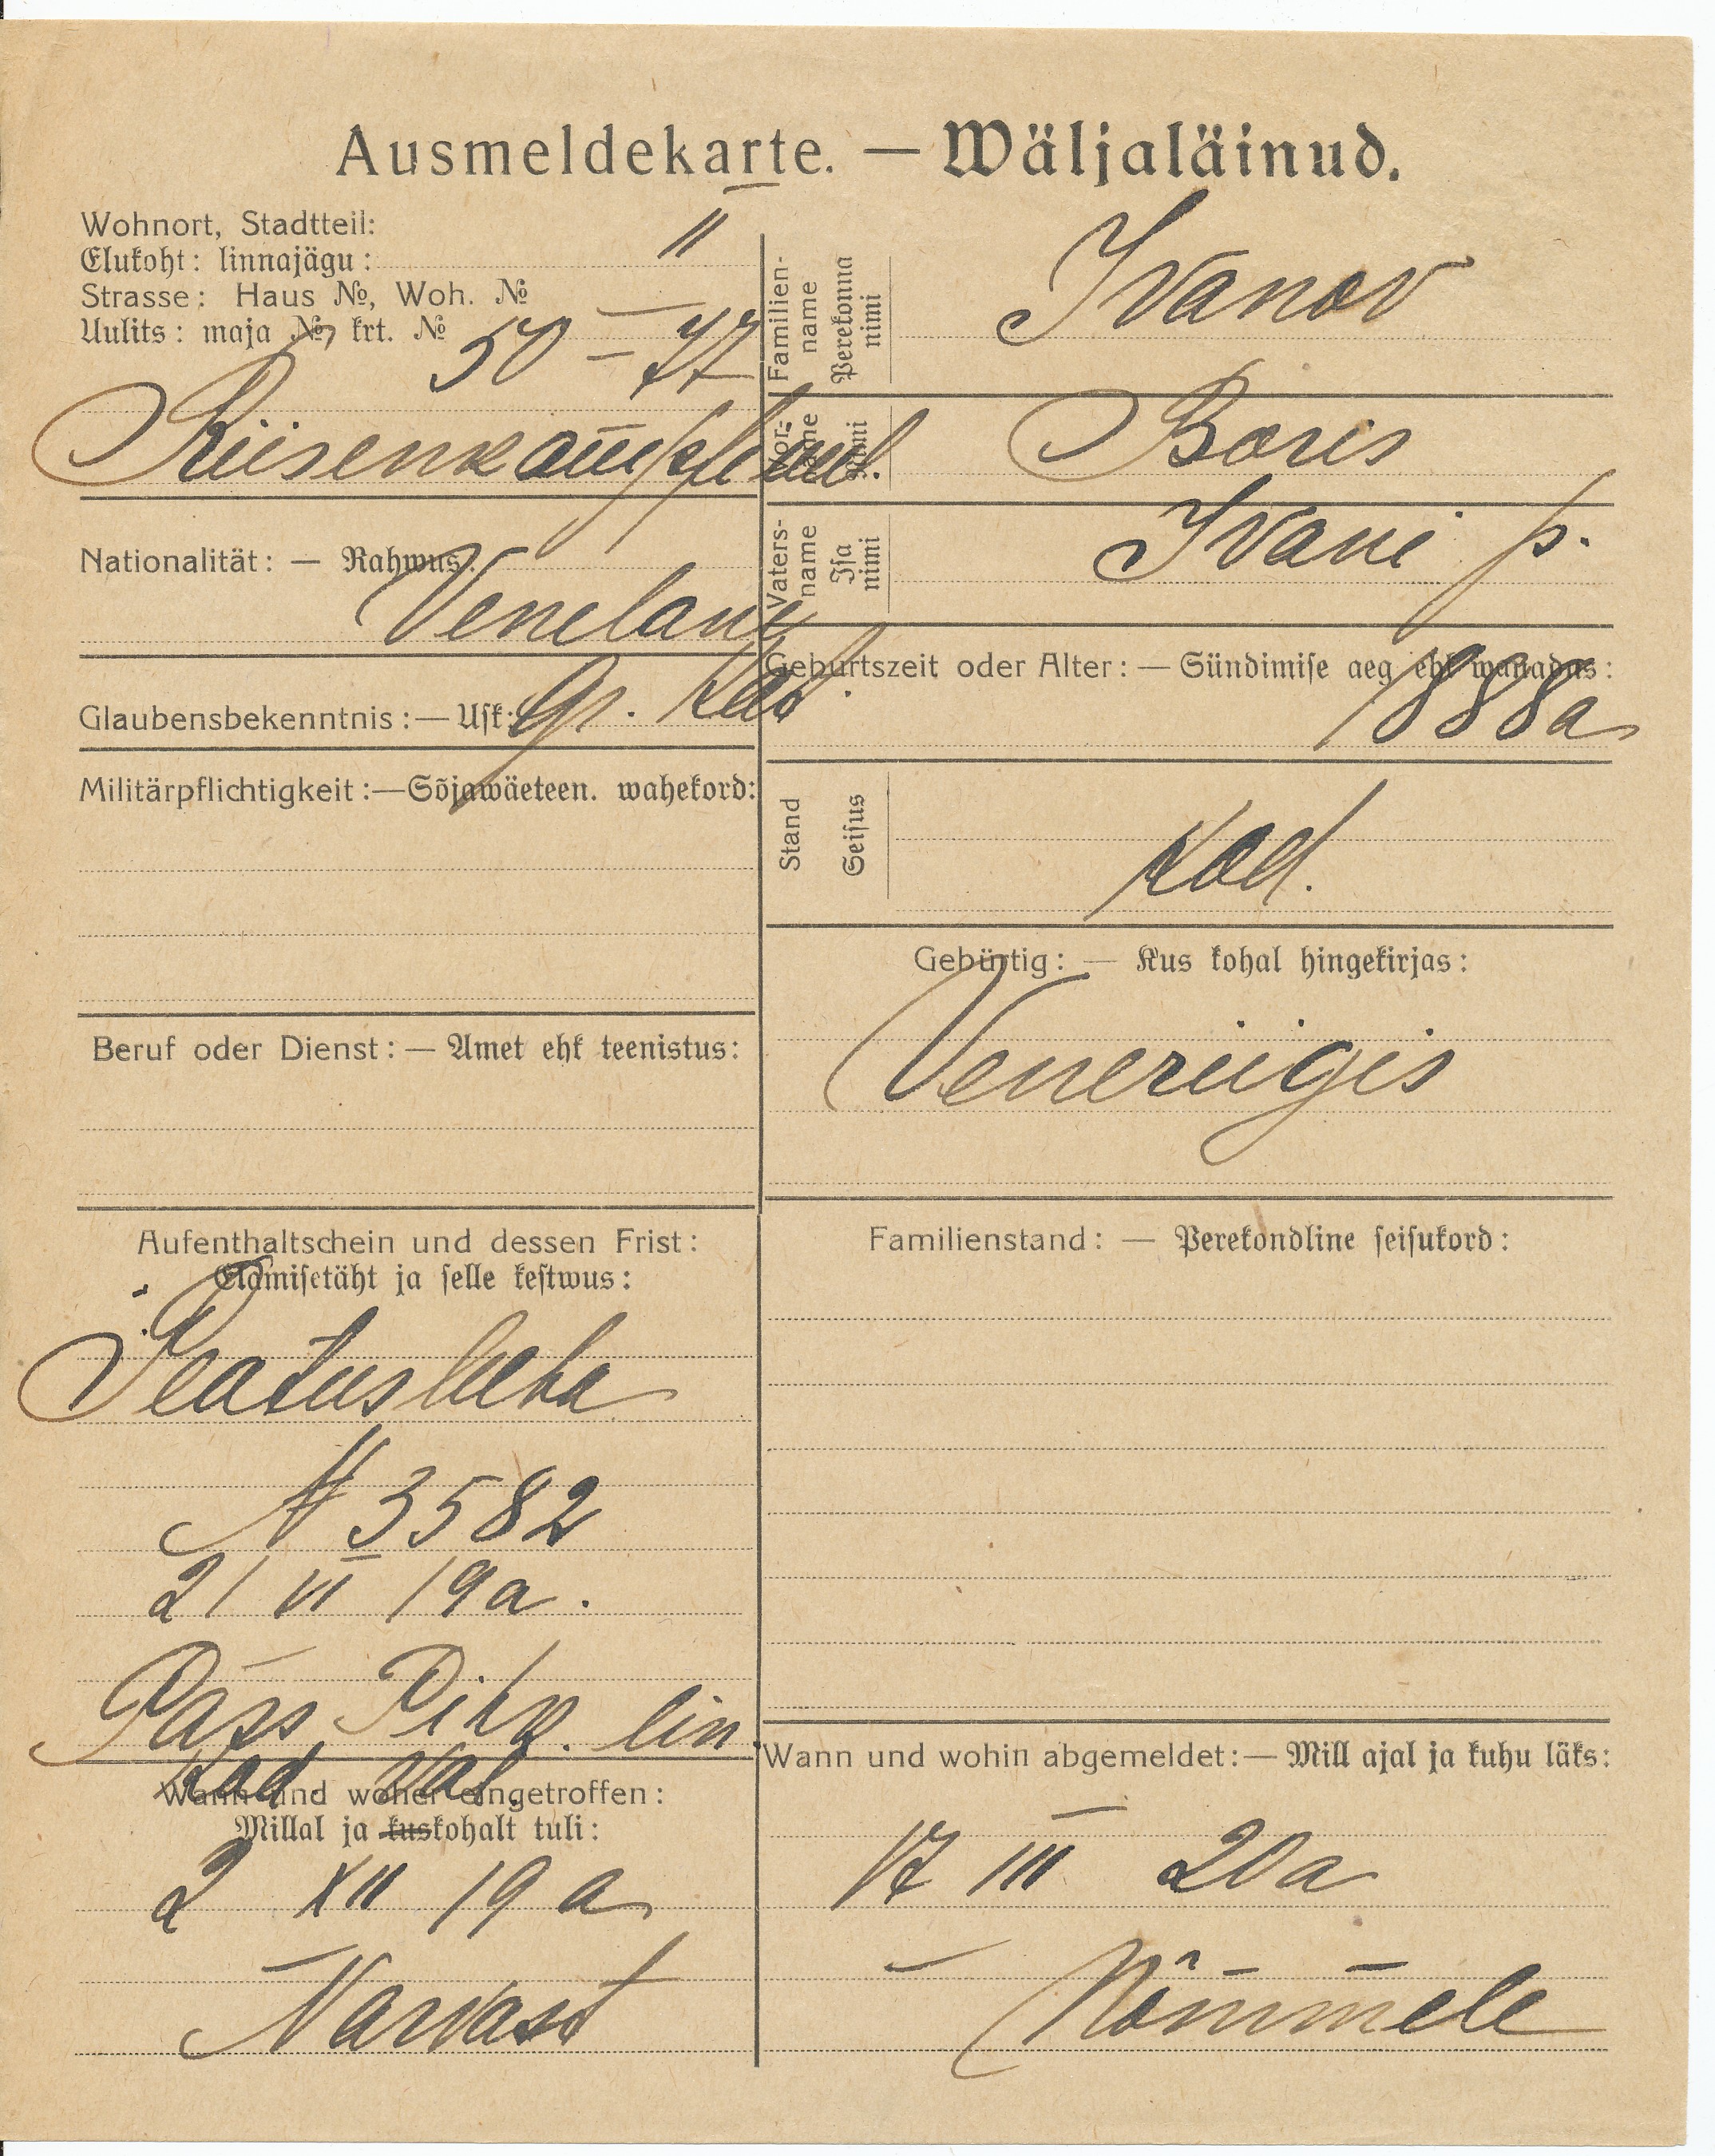 Ausmeldekarte. — Wäljaläinud.
Wohnort, Stadtteil:
Elukoht: linnajägu: II
Strasse: Haus №, Woh. №
Uulits: maja №, krt. № 50 – 77
Nationalität: — Rahwus:
Venelane
Glaubensbekenntnis: — Usk: Gr. Kat.
Militärpflichtigkeit: — Sõjawäeteen. wahekord:
Beruf oder Dienst: — Amet ehk teenistus:
Aufenthaltschein und dessen Frist:
Elamisetäht ja selle kestwus:
Peatusleht
№ 3582
21 VI 19 a.
Pass Pihk. lin.
Wann und woher eingetroffen:
Millal ja kuskohalt tuli:
2 XII 19 a
Narvast
Familien-name
Perekonna nimi
Ivanov
Vor-name
Nimi
Boris
Vaters-name
Isa nimi
Ivani p.
Geburtszeit oder Alter: — Sündimise aeg ehk wanadus:
1888 a
Stand
Seisus
Kod.
Gebürtig: — Kus kohal hingekirjas:
Veneriigis
Familienstand: — Perekondline seisukord:
Wann und wohin abgemeldet: — Mill ajal ja kuhu läks:
17 III 20 a
Nõmmele